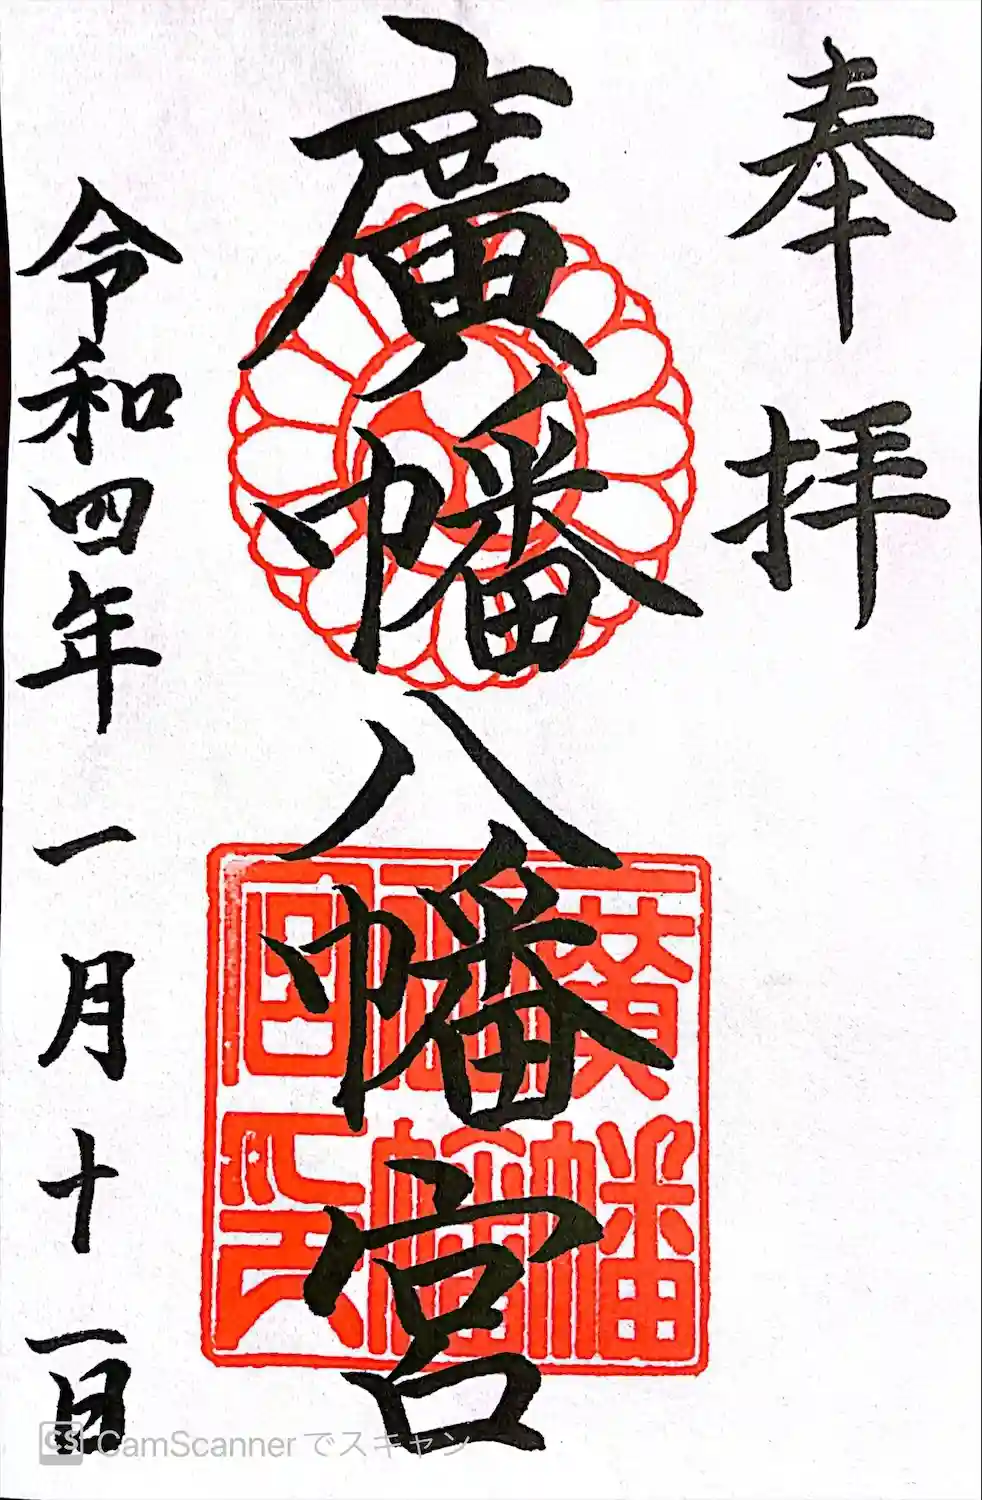 奉拝
廣幡八幡宮
廣幡
八幡
宮印
令和四年一月十一日
CS CamScanner でスキャン